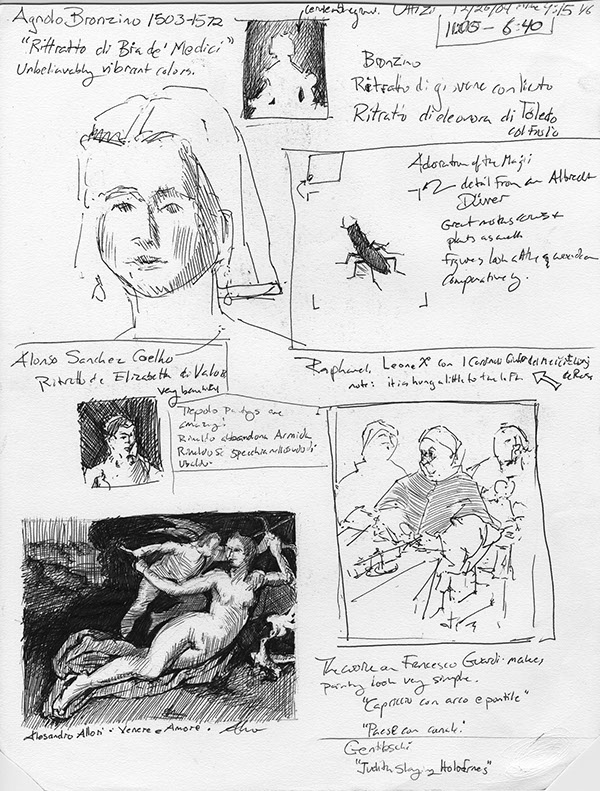 Agnolo Bronzino 1503-1572
"Rittratto di Bia de' Medici"
Unbelievably vibrant colors.
Uffizi 12/26/04 4:15
11:05 - 6:40
Bronzino
Ritratto di giovane con liuto
Ritratto di eleonora di Toledo
col figlio
Adoration of the Magi
detail from an Albrecht
Dürer
Great
plants as well
figures look a little wooden
comparatively.
Alonso Sanchez Coelho
Ritratto de Elizabeth di Valois
very beautiful
Raphael Leone X° con I Cardinali
note: it is hung a little to the left
Tiepolo Paintings are
amazing!
Rinaldo abbandona Armida
Rinaldo si specchia nello scudo di
Ubaldo.
Alesandro Allori · Venere e Amore.
The work on Francesco Guardi makes
painting look very simple.
"Capriccio con arco e pontile"
"Paese con canali."
Gentileschi
"Judith Slaying Holofernes"